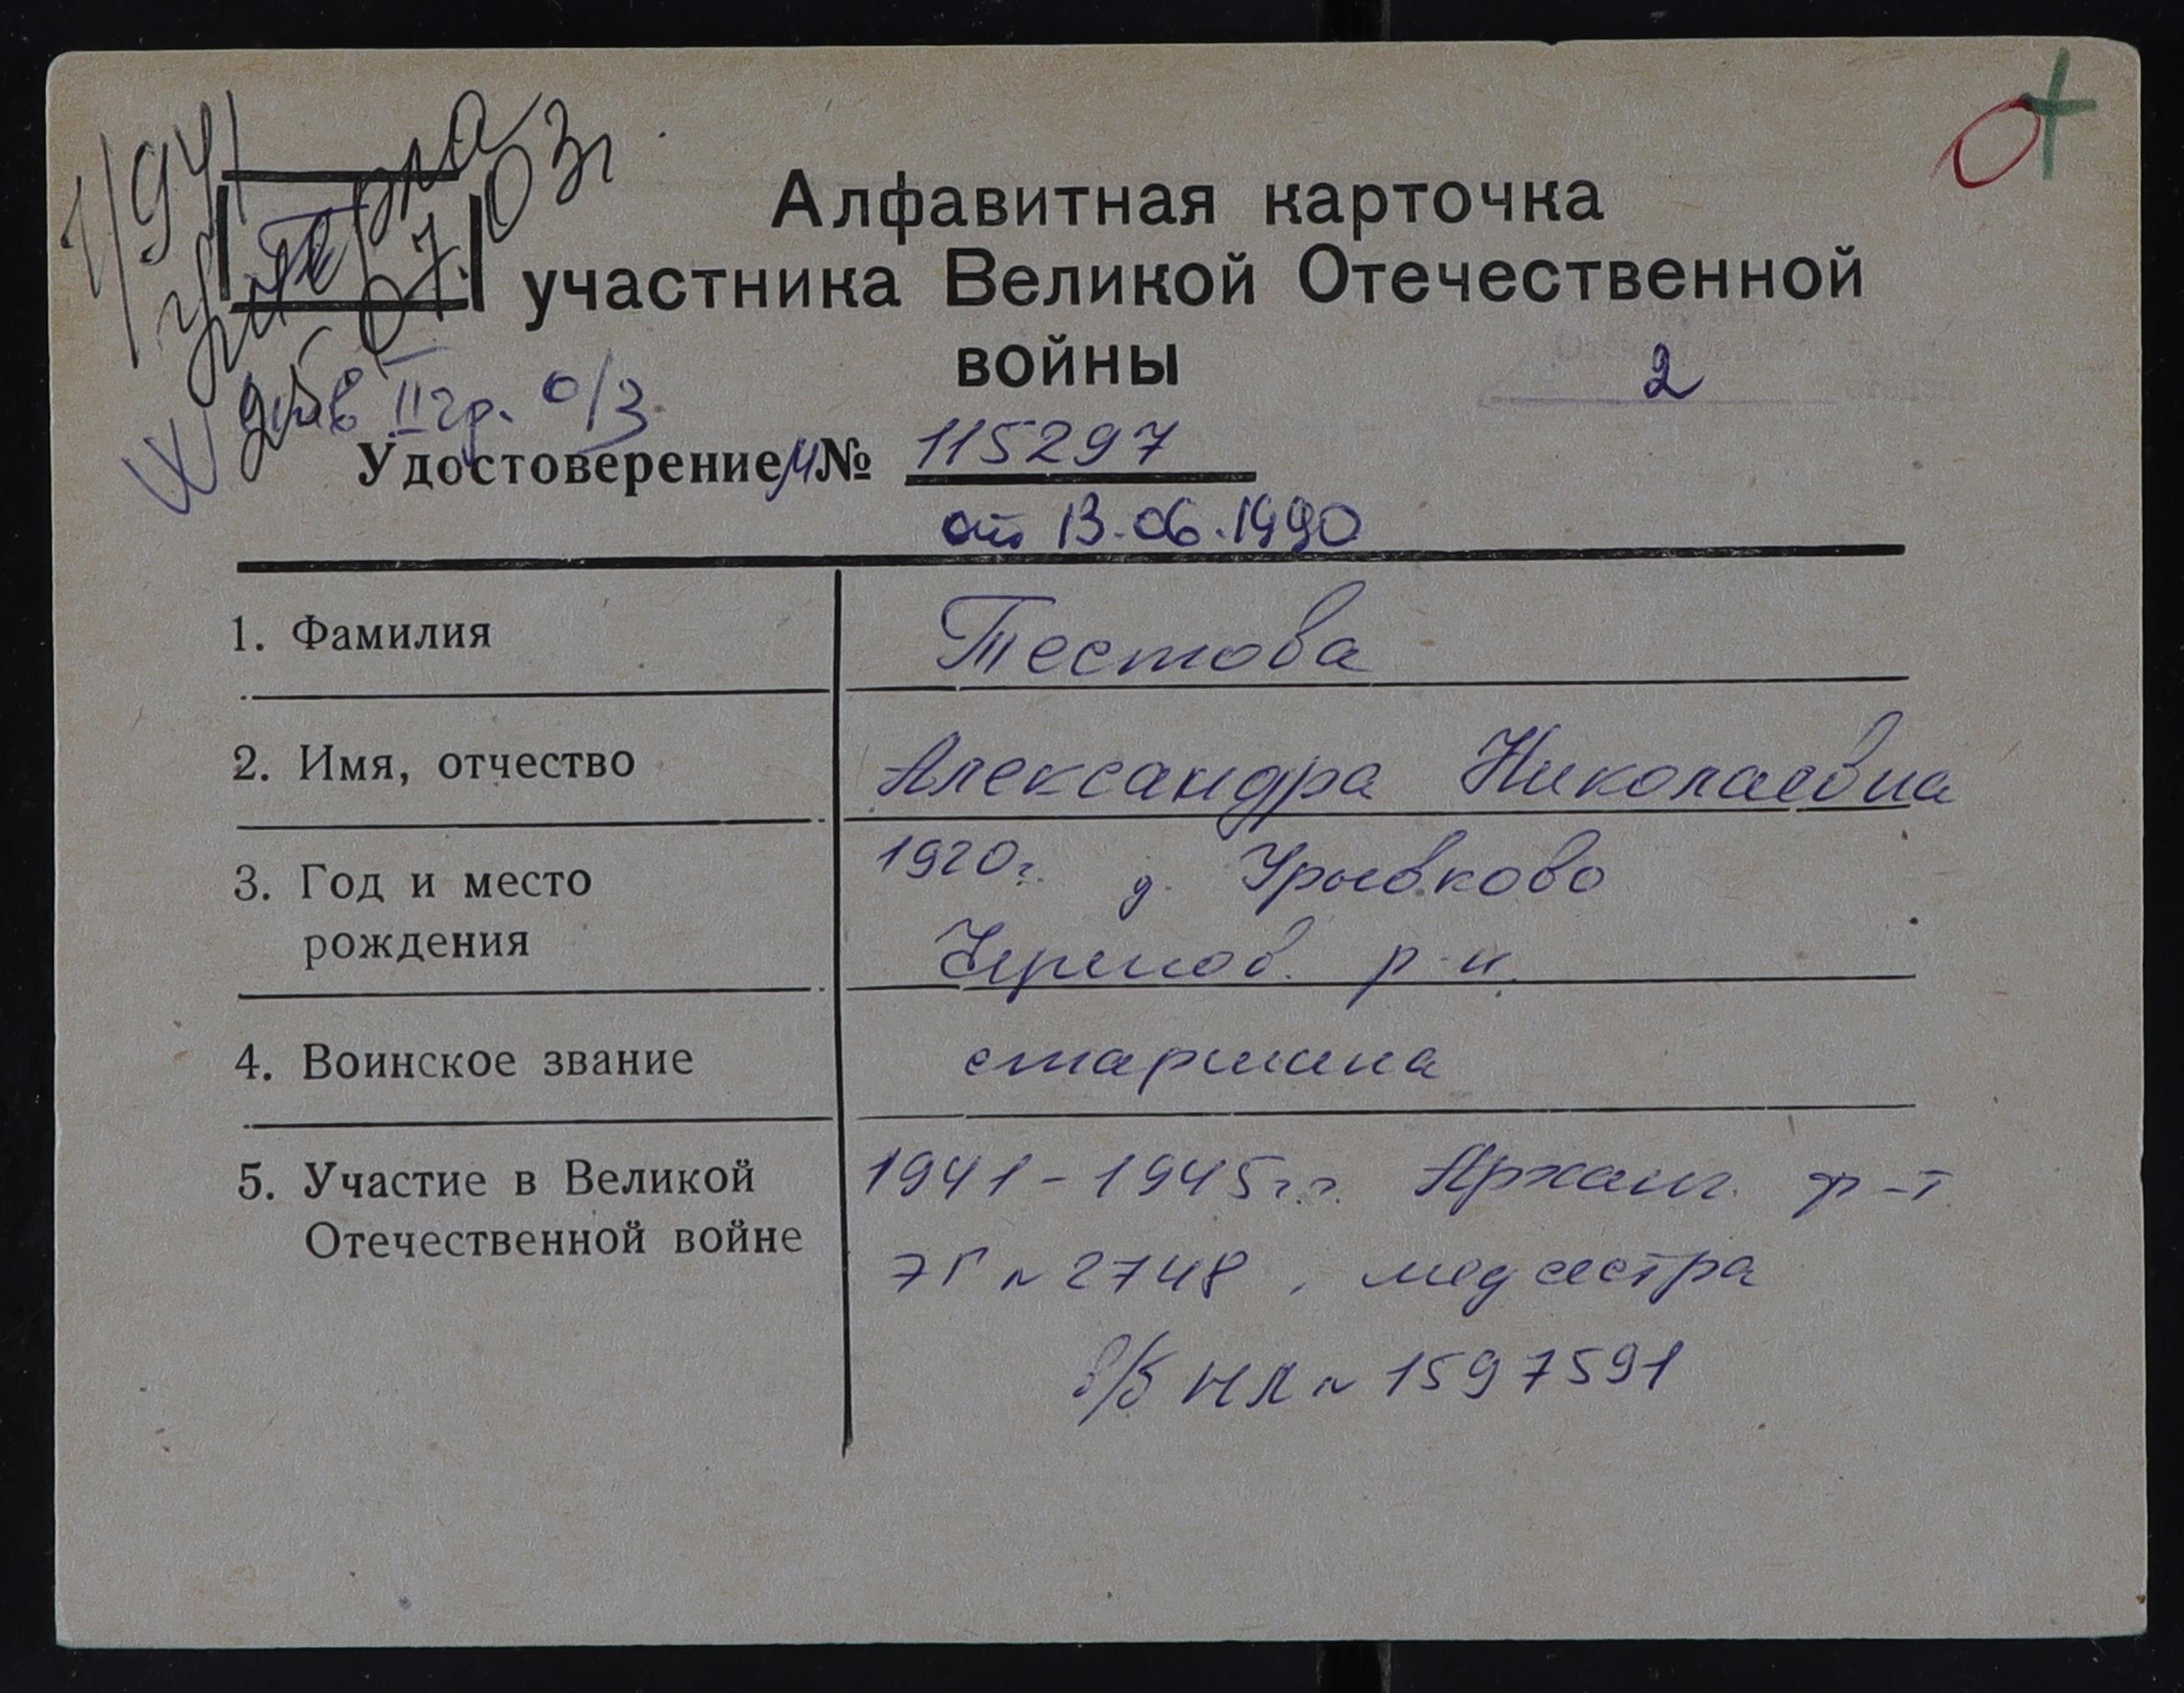 1/941
умерла
Те
25.07.03г
Алфавитная карточка
участника Великой Отечественной
войны
2
инв IIгр. о/з
Удостоверение И № 115297
от 13.06.1990
1. Фамилия Тестова
2. Имя, отчество Александра Николаевна
3. Год и место рождения 1920г. д. Урывково
Черепов. р-н
4. Воинское звание старшина
5. Участие в Великой Отечественной войне 1941-1945г.г. Арханг. ф-т
ЭГ N 2748, медсестра
в/б НЛ N 1597591